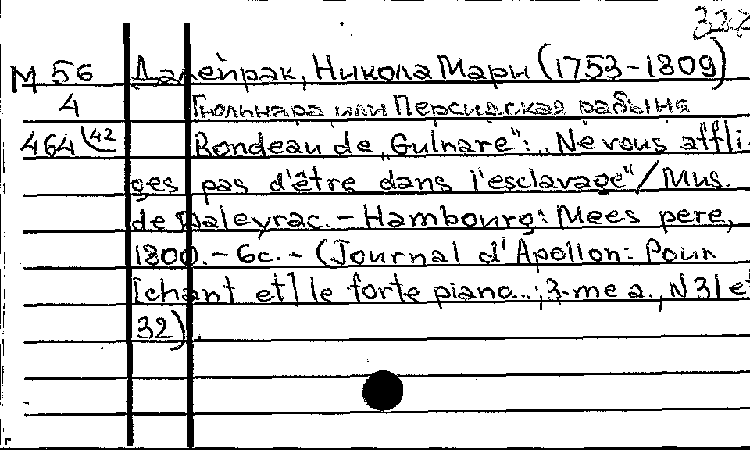 М 56 Далейрак, Никола Мари (1753-1809)
4 Гюльнара или Персидская рабыня
464(42 Rondeau de „Gulnare“: „Ne vous affli-
ges pas d'être dans l'esclavage“/ Mus.
de Daleyrac. - Hambourg: Mees pere,
1800. - 6c. - (Journal d'Apollon: Pour
[chant et] le forte piano..; 3-me a., N 31 et
32).